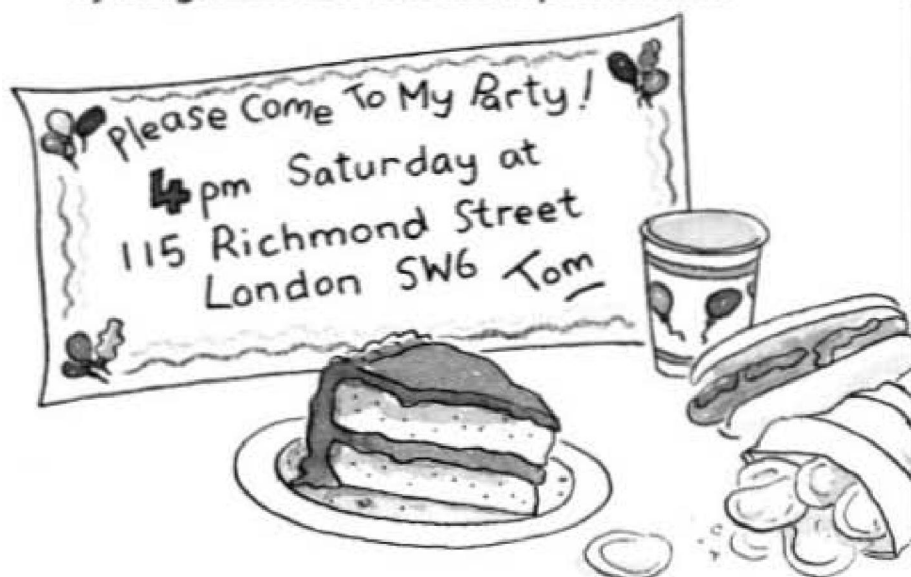 Please Come To My Party!
4pm Saturday at
115 Richmond Street
London SW6 Tom